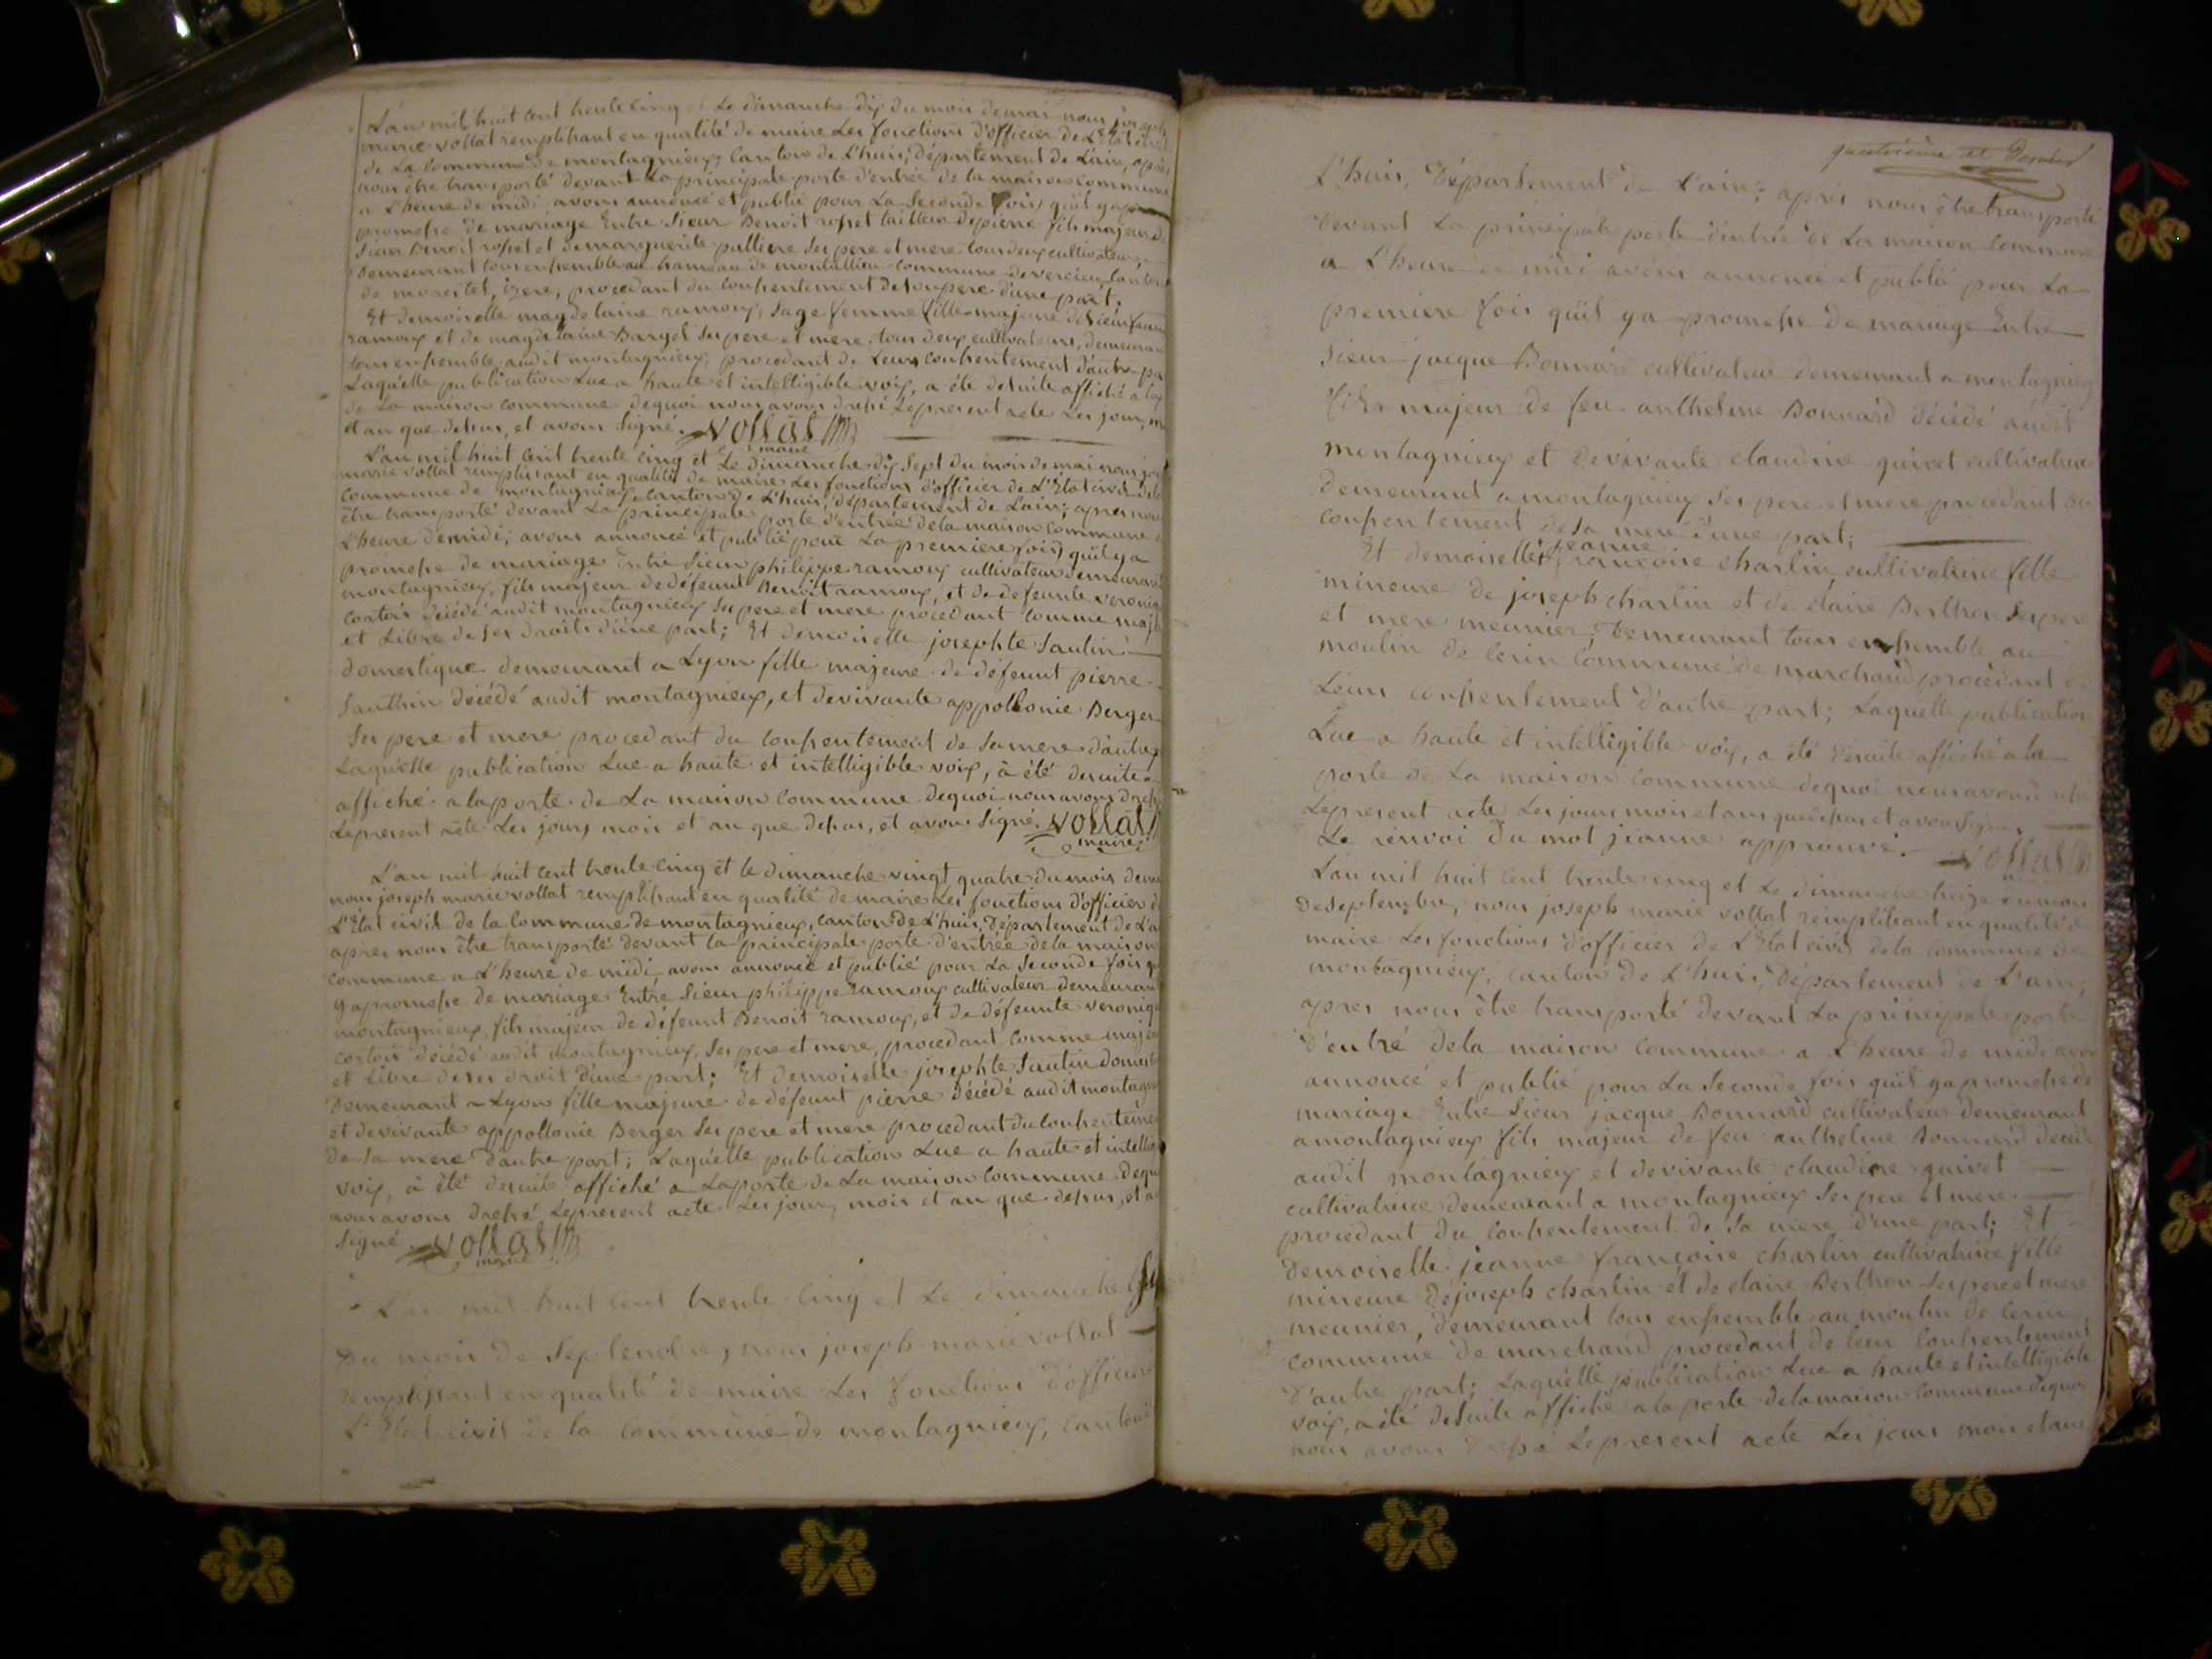 L'an mil huit cent trente cinq et Le dimanche dix du mois de mai nous joseph
marie vollat remplissant en qualité de maire Les fonctions d'officier de L'Etat civil
de La commune de montagnieux, Canton de L'huis, Département de L'ain, après
nous être transporté devant La principale porte d'entrée de la maison commune
a L'heure de midi avons annoncé et publié pour La Seconde fois qu'il y a
promesse de mariage Entre Sieur Benoit rosset tailleur de pierre fils majeur de
Sieur Benoit rosset et de marguerite palliere Ses pere et mere tous deux cultivateurs
Demeurant tous ensemble au hameau de montallieu commune de vercieu Canton
de morestel, izere, procedant du consentement de son pere d'une part.
Et demoiselle magdelaine ramoux, Sage femme fille majeure de Sieur
ramoux et de magdelaine Bargel Ses pere et mere, tous deux cultivateurs, demeurant
tous ensemble audit montagnieux, procedant de Leurs consentement d'autre part
Laquelle publication Lue a haute et intelligible voix, a été de suite affiché a la porte
de La maison commune dequoi nous avons dressé Le present acte Les jour, mois
et an que dessus, et avons Signé. vollat
maire
L'an mil huit cent trente cinq et Le dimanche dix Sept du mois de mai nous joseph
marie vollat remplissant en qualité de maire Les fonctions d'officier de L'Etat civil de la
commune de montagnieux, canton de L'huis, département de L'ain; apres nous
être transporté devant La principale porte d'entrée de la maison commune a
L'heure de midi; avons annoncé et publié pour La premiere fois qu'il y a
promesse de mariage Entre Sieur philippe ramoux cultivateur demeurant
montagnieux, fils majeur de défeunt Benoit ramoux, et de defeunte veronique
cortois décédé audit montagnieux Ses pere et mere procedant comme majeur
et Libre de ses droits d'une part; Et demoiselle josephte Sautin
domestique demeurant a Lyon fille majeure de défeunt pierre
Sauthin décédé audit montagnieux, et de vivante appollonie Berger
Ses pere et mere procedant du consentement de Sa mere d'autre
Laquelle publication Lue a haute et intelligible voix, à été de suite
affiché a la porte de La maison commune dequoi nous avons dressé
Le present acte Les jour, mois et an que dessus, et avons Signé. vollat
maire
L'an mil huit cent trente cinq et le dimanche vingt quatre du mois de mai
nous joseph marie vollat remplissant en qualité de maire Les fonctions d'officier de
L'Etat civil de la commune de montagnieux, canton de L'huis, Département de L'ain
apres nous être transporté devant la principale porte d'entrée de la maison
commune a L'heure de midi avons annoncé et publié pour La Seconde fois qu'il
y a promesse de mariage Entre Sieur philippe ramoux cultivateur demeurant
montagnieux, fils majeur de défeunt Benoit ramoux, et de défeunte veronique
cortois décédé audit montagnieux, Ses pere et mere, procedant comme majeur
et Libre de ses droit d'une part; Et demoiselle josephte Sautin domestique
Demeurant a Lyon fille majeure de défeunt pierre décédé audit montagnieux
et de vivante appollonie Berger Ses pere et mere procedant du consentement
de Sa mere d'autre part; Laquelle publication Lue a haute et intelligible
voix, à été de suite affiché a La porte de La maison commune dequoi
nous avons dressé Le present acte Les jour, mois et an que dessus, et avons
Signé. vollat
maire
L'an mil huit cent trente cinq et Le dimanche Six
Du mois de Septembre, nous joseph marie vollat
remplissant en qualité de maire Les fonctions d'officier
L'Etat civil de la commune de montagnieux, canton de
quatrième et Dernier
L'huis, Département de L'ain; après nous être transporté
Devant La principale porte d'entrée de La maison commune
a L'heure de midi avons annoncé et publié pour La
premiere fois qu'il y a promesse de mariage Entre
Sieur jacque Bonnard cultivateur demeurant a montagnieux
fils majeur de feu anthelme Bonnard décédé audit
montagnieux et de vivante claudine guivet cultivatrice
Demeurant a montagnieux Ses pere et mere procedant du
consentement de Sa mere d'une part;
jeanne
Et demoiselle françoise charlin cultivatrice fille
mineure de joseph charlin et de claire Berthon Ses pere
et mere meunier, Demeurant tous ensemble au
moulin de Cerin commune de marchand procedant de
Leurs consentement d'autre part; Laquelle publication
Lue a haute et intelligible voix, a été desuite affiché a la
porte de La maison commune dequoi nous avons dressé
Le present acte Les jour mois et an que dessus et avons Signé.
Le renvoi du mot jeanne approuvé. vollat
L'an mil huit cent trente cinq et Le dimanche treize du mois
De Septembre, nous joseph marie vollat remplissant en qualité de
maire Les fonctions d'officier de L'Etat civil de la commune de
montagnieux, canton de L'huis, Département de L'ain,
apres nous être transporté devant La principale porte
D'entré de la maison commune a L'heure de midi avons
annoncé et publié pour La Seconde fois qu'il y a promesse de
mariage Entre Sieur jacque Bonnard cultivateur demeurant
a montagnieux fils majeur de feu anthelme Bonnard décédé
audit montagnieux et de vivante claudine guivet
cultivatrice demeurant a montagnieux Ses pere et mere
procedant du consentement de Sa mere d'une part; Et
Demoiselle jeanne françoise charlin cultivatrice fille
mineure de joseph charlin et de claire Berthon Ses pere et mere
meunier, demeurant tous ensemble au moulin de Cerin
commune de marchand procedant de leur consentement
D'autre part; Laquelle publication Lue a haute et intelligible
voix, a été desuite affiché a la porte de la maison commune dequoi
nous avons dressé Le present acte Les jour mois et an